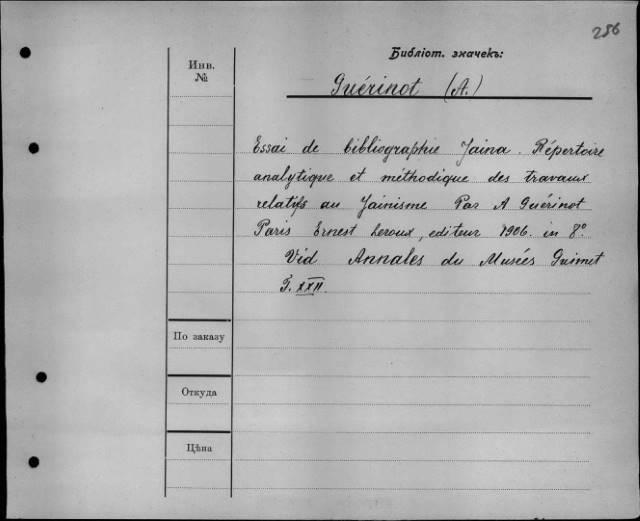 286
Библіот. значекъ:
Инв.
№
Guérinot (A.)
Essai de bibliographie Jaina. Répertoire
analytique et méthodique des travaux
relatifs au Jainisme Par A Guérinot
Paris Ernest Leroux, editeur 1906. in 8°
Vid Annales du Musées Guimet
T. XXII.
По заказу
Откуда
Цѣна